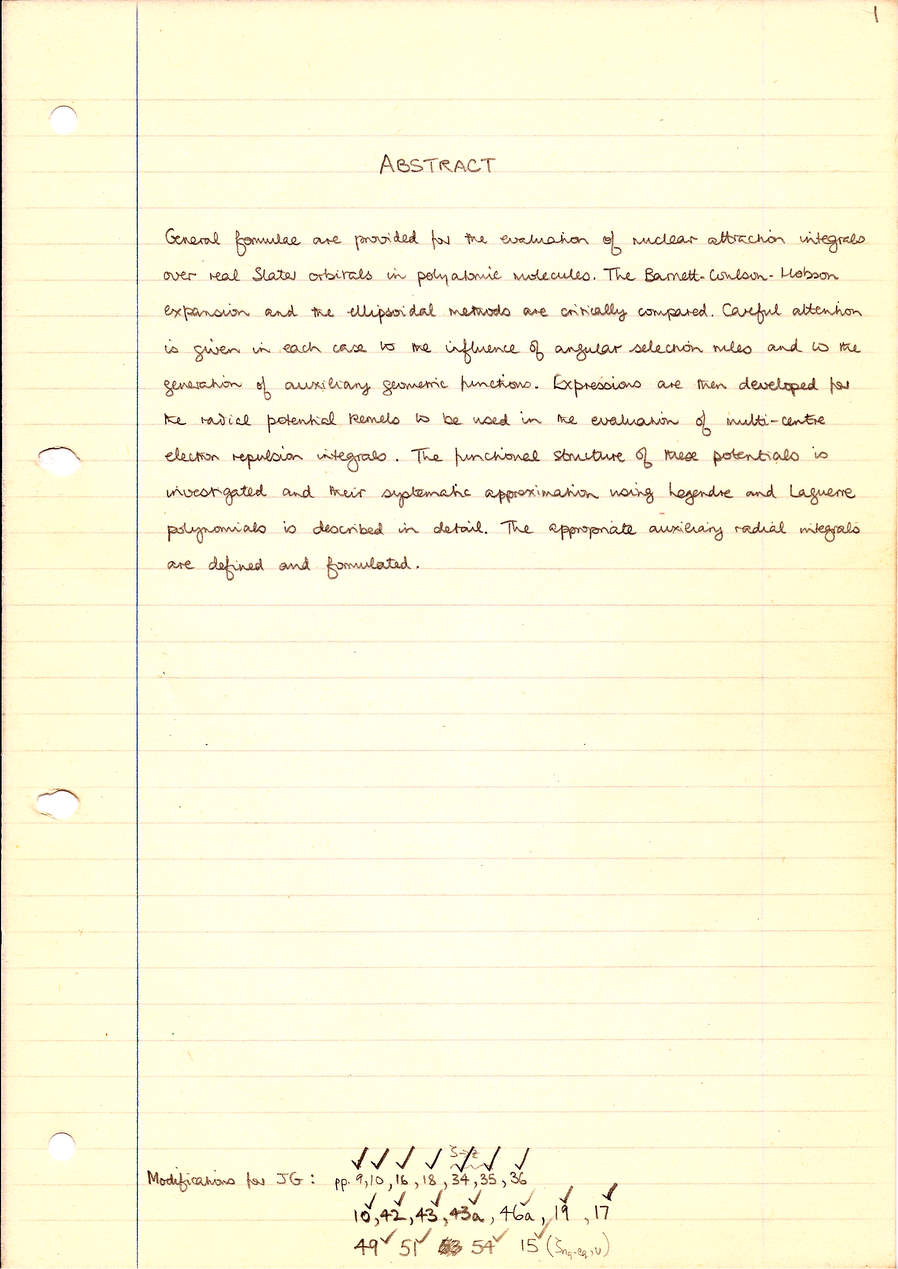 1
ABSTRACT
General formulae are provided for the evaluation of nuclear attraction integrals
over real Slater orbitals in polyatomic molecules. The Barnett-Coulson-Hobson
expansion and the ellipsoidal methods are critically compared. Careful attention
is given in each case to the influence of angular selection rules and to the
generation of auxiliary geometric functions. Expressions are then developed for
the radial potential kernels to be used in the evaluation of multi-centre
electron repulsion integrals. The functional structure of these potentials is
investigated and their systematic approximation using Legendre and Laguerre
polynomials is described in detail. The appropriate auxiliary radial integrals
are defined and formulated.
Modifications for JG: pp. 9, 10, 16, 18, 34, 35, 36
10, 42, 43, 43a, 46a, 19, 17
49 51 54 15